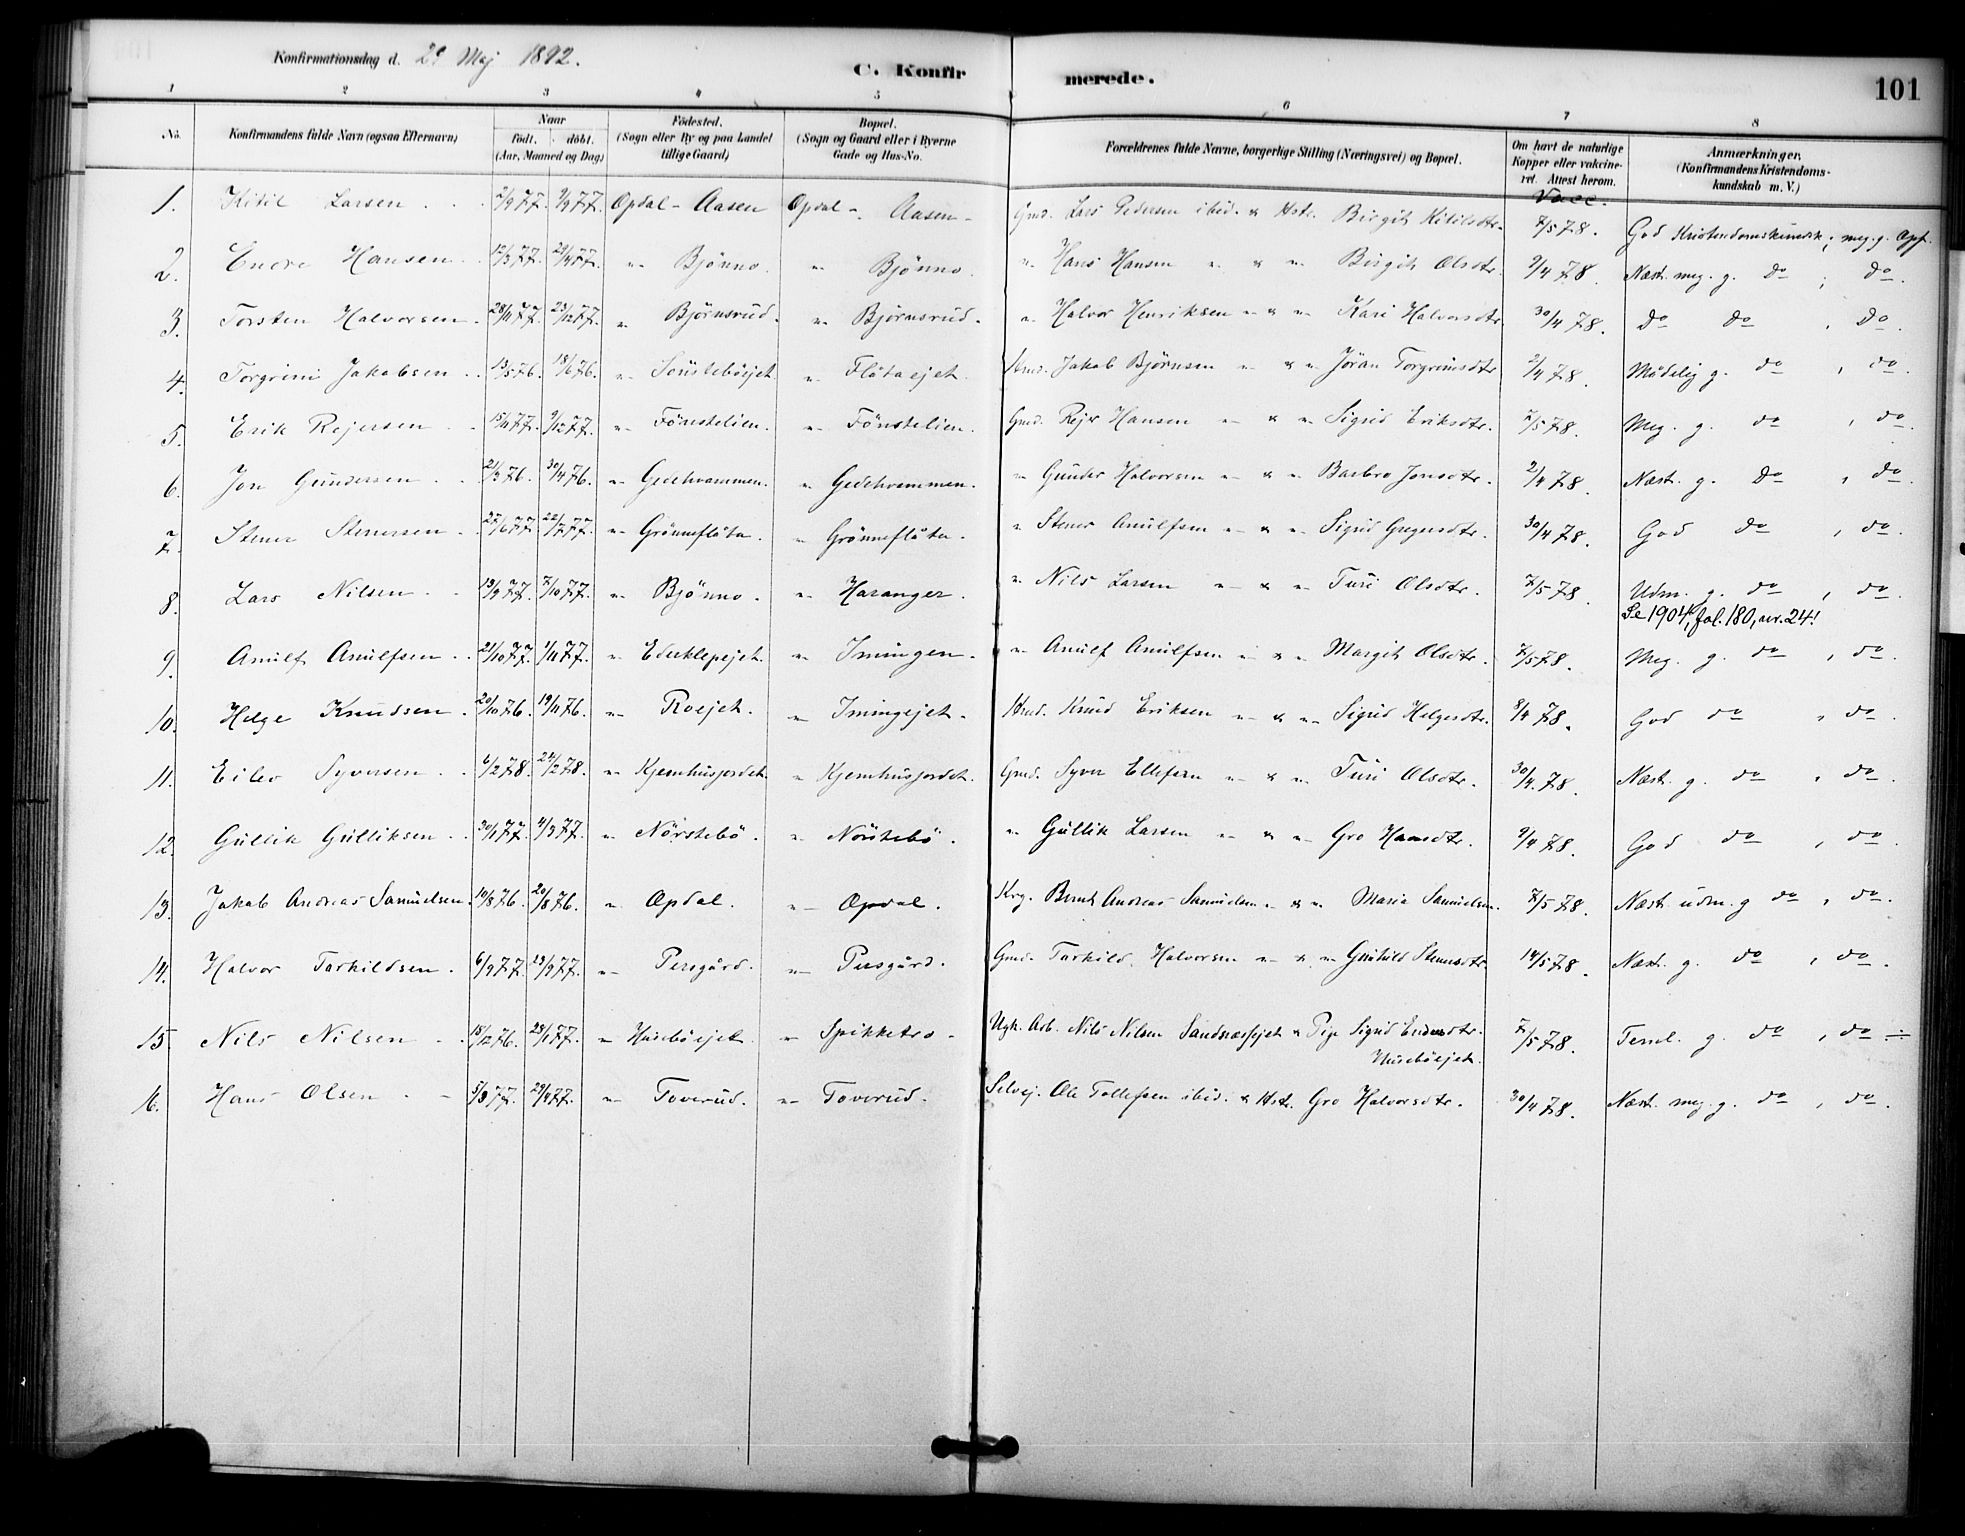 Konfirmationsdag d. 29 Maj 1892.
C. Konfirmerede.
101
1 2 3 4 5 6 7 8
No.
Konfirmandens fulde Navn (ogsaa Efternavn)
Naar
født. døbt.
(Aar, Maaned og Dag)
Fødested.
(Sogn eller By og paa Landet tillige Gaard)
Bopæl.
(Sogn og Gaard eller i Byerne Gade og Hus-No.
Forældrenes fulde Navne, borgerlige Stilling (Næringsvei) og Bopæl.
Om havt de naturlige Kopper eller vakcineret. Attest herom.
Anmærkninger.
(Konfirmandens Kristendomskundskab m. V.)
Vacc.
1. Kitil Larsen 2/9 77. 9/9 77. Opdal - Aasen Opdal - Aasen - Gmd. Lars Pedersen ibid. & Hstr. Birgit Kitilsdtr. 7/5 78. God Kristendomskundsk; meg. g. Opf.
2. Endre Hansen 12/3 77. 29/4 77. " Bjönno. " Bjönno. " Hans Hansen " & " Birgit Olsdtr. 9/4 78. Næst. meg. g. do ; do.
3. Torsten Halvorsen 28/11 77. 23/12 77. " Björnsrud. " Björnsrud. " Halvor Henriksen " & " Kari Halvorsdtr. 30/4 78. do do , do.
4. Torgrim Jakobsen 13/5 76. 18/6 76. " Sönsteböejet " Flåtaejet. Hmd. Jakob Björnsen " & " Jöran Torgrimsdtr 2/4 78. Mådelig g. do , do.
5. Erik Rejersen 15/11 77. 9/12 77. " Fönstelien. " Fönstelien. Gmd. Rejer Hansen " & " Sigrid Eriksdtr. 7/5 78. Meg. g. do , do.
6. Jon Gundersen 21/3 76. 30/4 76. " Gedehvammen. " Gedehvammen. " Gunder Halvorsen " & " Barbro Jonsdtr. 2/4 78. Næst. g. do , do.
7. Stener Stenersen 27/6 77. 22/7 77. " Grönneflåta. " Grönneflåta. " Stener Arnulfsen " & " Sigrid Gregersdtr. 30/4 78. God do , do.
8. Lars Nilsen 13/9 77. 7/10 77. " Bjönno. " Haranger. " Nils Larsen " & " Turi Olsdtr. 7/5 78. Udm. g. do , do.
Se 1904, fol. 180, nr. 24!
9. Arnulf Arnulfsen 21/10 77. 1/11 77. " Ederklepejet. " Imingen. " Arnulf Arnulfsen " & " Margit Olsdtr. 7/5 78. Meg. g. do , do.
10. Helge Knudsen 20/10 76. 19/11 76. " Roejet. " Imingejet. Hmd. Knud Eriksen " & " Sigrid Helgesdtr. 8/4 78. God do , do.
11. Eilev Syversen 6/2 78. 24/2 78. " Kjemhusjordet. " Kjemhusjordet. Gmd. Syver Ellefsen " & " Turi Olsdtr. 30/4 78. Næst. g. do , do.
12. Gullik Gulliksen 30/1 77. 4/3 77. " Nörstebö. " Nörstebö. " Gullik Larsen " & " Gro Hansdtr. 9/4 78. God do , do.
13. Jakob Andreas Samuelsen. 10/8 76. 20/8 76. " Opdal. " Opdal. Krg. Bernt Andreas Samuelsen " & " Maria Samuelsen. 7/5 78. Næst. udm. g do , do.
14. Halvor Tarkildsen. 6/9 77. 23/9 77. " Persgård. " Persgård. Gmd. Tarkild Halvorsen " & " Gunhild Stenersdtr. 14/5 78. Næst. g. do , do.
15. Nils Nilsen 15/12 76. 28/1 77. " Huseböejet. " Spikketro - Ugk. Arb. Nils Nilsen Sandnæssejet & Pige Sigrid Endresdtr. 7/5 78. Teml. g. do , do ÷
Huseböejet.
16. Hans Olsen 5/3 77. 29/4 77. " Toverud. " Toverud. Selvej. Ole Tollefsen ibid. & Hstr. Gro Halvorsdtr. 30/4 78. Næst. meg. g. do , do.